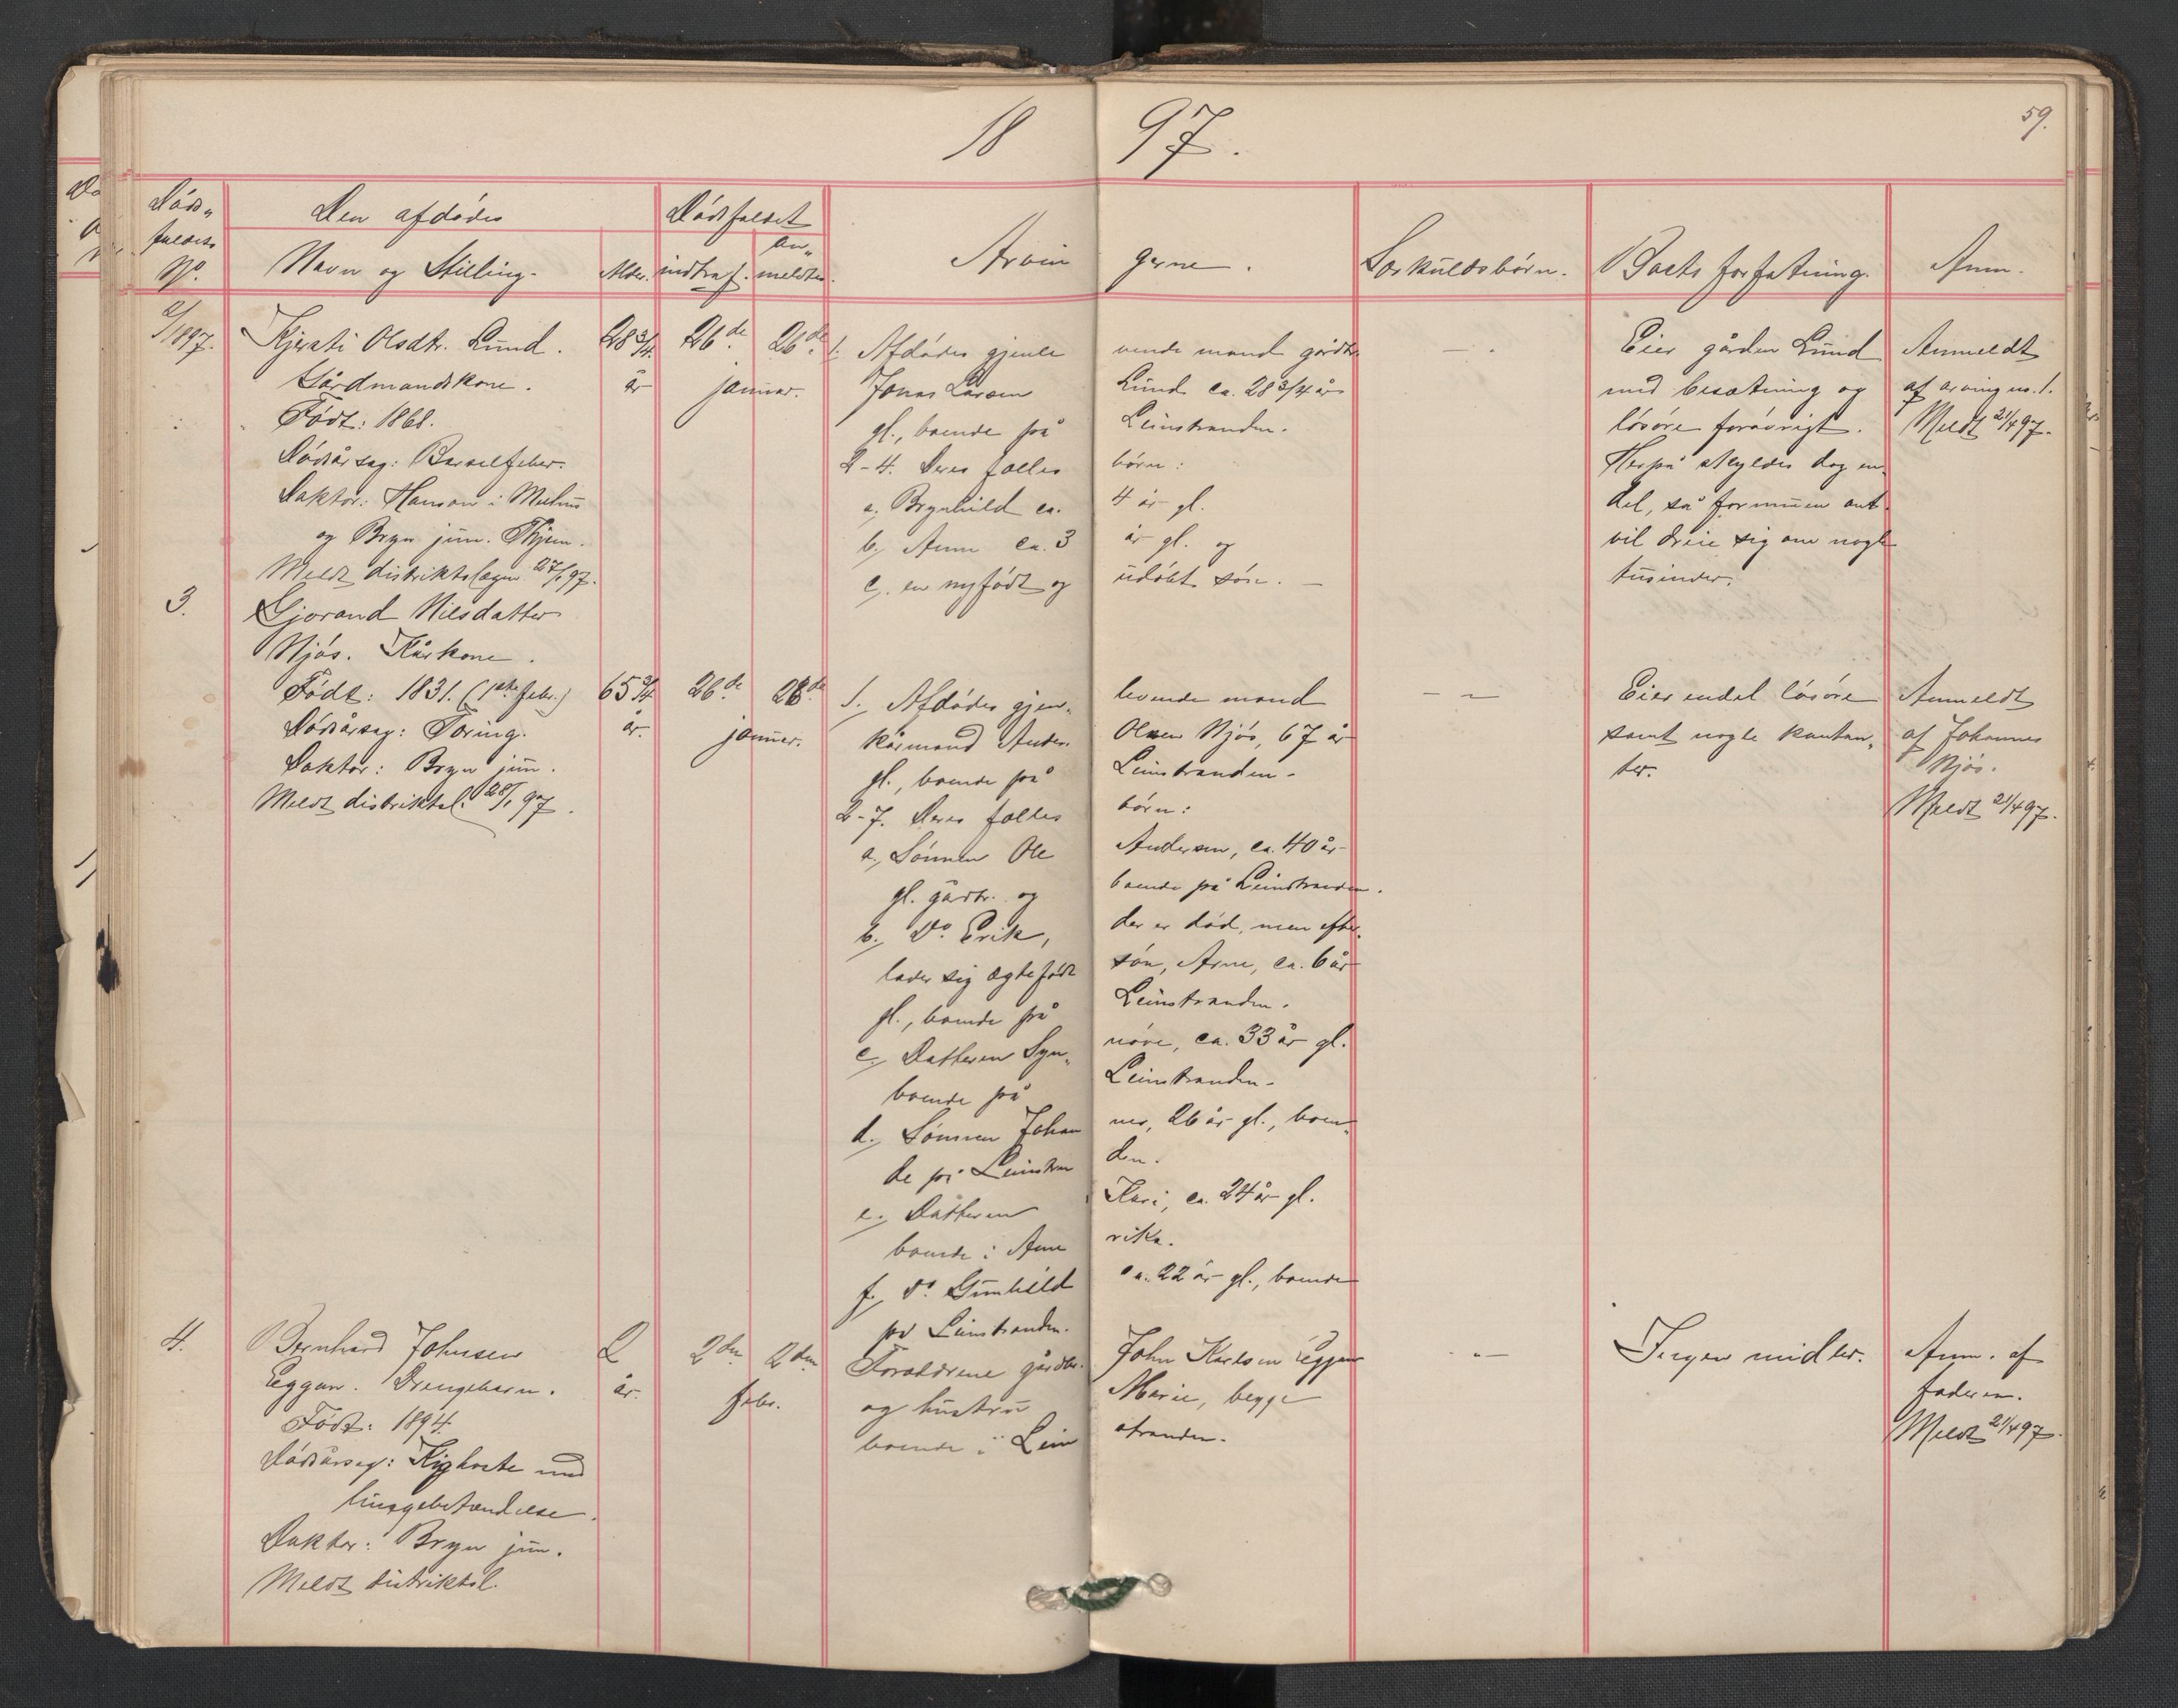 18 97.
59.
Døds-
faldets
No.
Den afdødes
Navn og Stilling.
Alder.
Dødsfaldet
indtraf.
an-
meldtes.
Arvin gerne.
Særkuldsbørn.
Boets forfatning.
Anm.
2/1897.
Kjersti Olsdtr. Lund.
Gårdmandskone.
Født: 1868.
Dødsårsag: Barselfeber.
Doktor: Hanson i Melhus
og Bryn jun. Thjem.
Meldt distriktslægen 27/1 97.
28 3/4
år
26de
26de
januar.
1. Afdødes gjenle vende mand gårdbr.
Jonas Larsen Lund ca. 28 3/4 år
gl., boende på Leinstranden.
2-4. Deres fælles børn:
a, Brynhild ca. 4 år gl.
b, Anne ca. 3 år gl. og
c, en nyfødt og udøbt søn. —
— .
Eier gården Lund
med besætning og
løsøre forøvrigt.
Herpå skyldes dog en-
del, så formuen ant.
vil dreie sig om nogle
tusinder.
Anmeldt
af arving no. 1.
Meldt 21/4 97.
3.
Gjorand Nilsdatter
Njøs. Kårkone.
Født: 1831. (1ste febr.)
Dødsårsag: Tæring.
Doktor: Bryn jun.
Meldt distriktsl. 28/1 97.
65 3/4
år.
26de
28de
januar.
1, Afdødes gjen- levende mand
kårmand Anders Olsen Njøs, 67 år
gl., boende på Leinstranden.
2-7. Deres fælles børn:
a, Sønnen Ole Andersen, ca. 40 år
gl. gårdbr. og boende på Leinstranden.
b, Do. Erik, der er død, men efter-
lader sig ægtefødt søn, Arne, ca. 6 år
gl., boende på Leinstranden.
c, Datteren Syn- nøve, ca. 33 år gl.
boende på Leinstranden.
d, Sønnen Johan nes, 26 år gl., boen-
de på Leinstran den.
e, Datteren Kari, ca. 24 år gl.
boende i Ame rika.
f, do. Gunhild ca. 22 år gl., boende
på Leinstranden.
— —
Eier endel løsøre
samt nogle kontan-
ter.
Anmeldt
af Johannes
Njøs.
Meldt 21/4 97.
4.
Bernhard Johnsen
Eggan. Drengebarn.
Født: 1894.
Dødsårsag: Kighoste med
lungebetændelse.
Doktor: Bryn jun.
Meldt distriktsl.
2
år.
2den
2den
febr.
Forældrene gårdbr. John Karlsen Eggan
og hustru Marie, begge
boende i Lein stranden.
—
Ingen midler.
Anm. af
faderen.
Meldt 21/4 97.